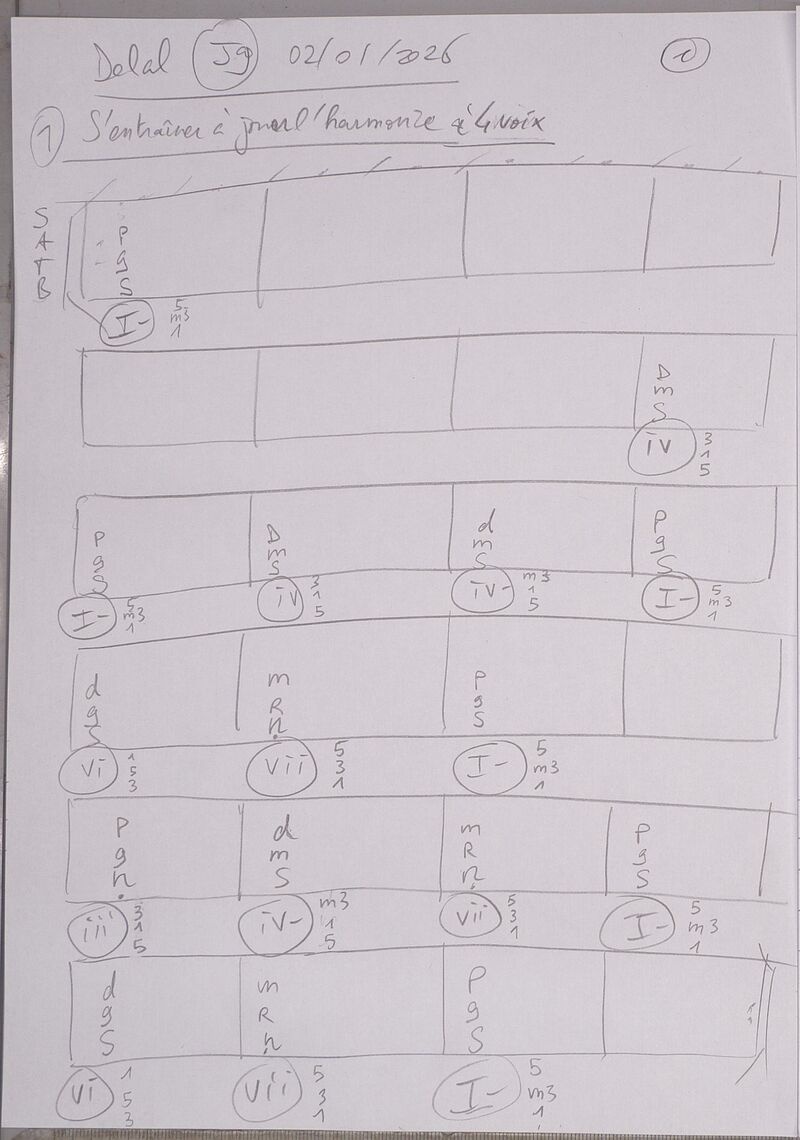 Delal Jg 02/01/2026 1
1 S'entraîner à jouer l'harmonie à 4 voix
S
A
T
B
P
g
S
I- 5 m3 1
D
m
S
iv 3 1 5
P D d P
g m m g
S S S S
I- 5 m3 1 iv 3 1 5 iv- m3 1 5 I- 5 m3 1
d m P
g R g
S n. S
vi 1 5 3 vii 5 3 1 I- 5 m3 1
P d m P
g m R g
n. S n. S
iii 3 1 5 iv- m3 1 5 vii 5 3 1 I- 5 m3 1
d m P
g R g
S n. S
vi 1 5 3 vii 5 3 1 I- 5 m3 1